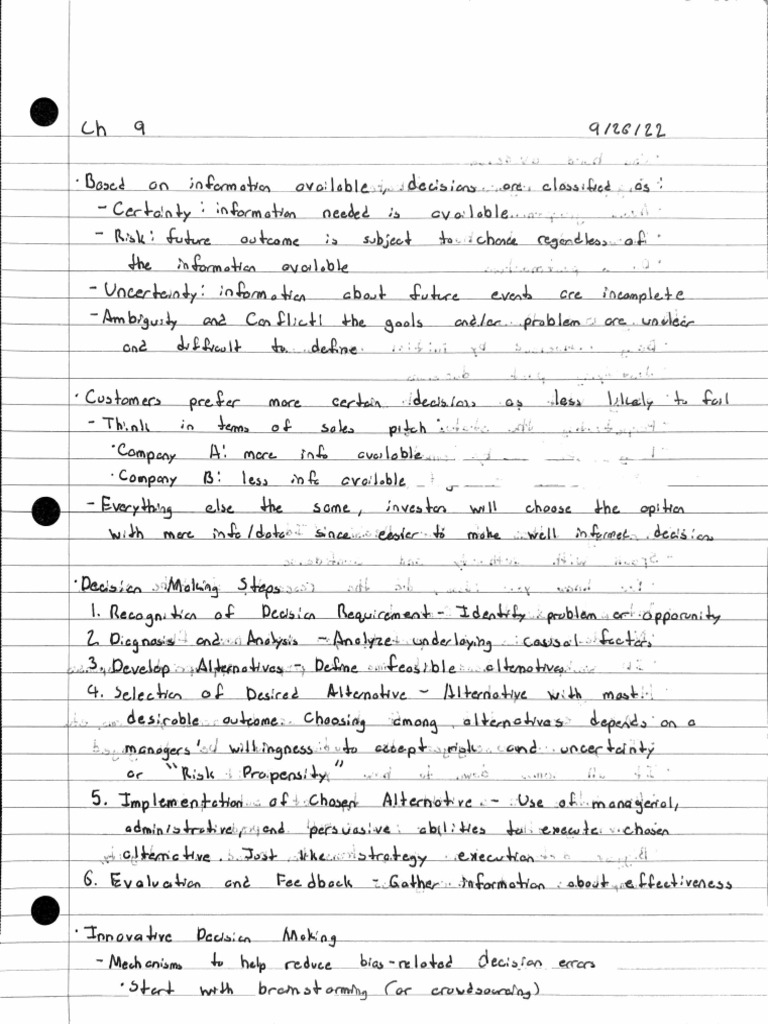 Ch 9 9/26/22
· Based on information available, decisions are classified as:
- Certainty: information needed is available
- Risk: future outcome is subject to chance regardless of
the information available
- Uncertainty: information about future events are incomplete
- Ambiguity and Conflict: the goals and/or problem are unclear
and difficult to define
· Customers prefer more certain decisions as less likely to fail
- Think in terms of sales pitch
· Company A: more info available
· Company B: less info available
- Everything else the same, investor will choose the opition
with more info/data since easier to make well informed decision
· Decision Making Steps
1. Recognition of Decision Requirement - Identify problem or opporunity
2. Diagnosis and Analysis - Analyze underlaying casusal factors
3. Develop Alternatives - Define feasible alternatives
4. Selection of Desired Alternative - Alternative with most
desirable outcome. Choosing among alternatives depends on a
managers' willingness to accept risk and uncertainty
or "Risk Propensity"
5. Implementation of Chosen Alternative - Use of managerial,
administrative, and persuasive abilities to execute chosen
alternative. Just like strategy execution
6. Evaluation and Feedback - Gather information about effectiveness
· Innovative Decision Making
- Mechanisms to help reduce bias-related decision errors
· Start with brainstorming (or crowdsourcing)